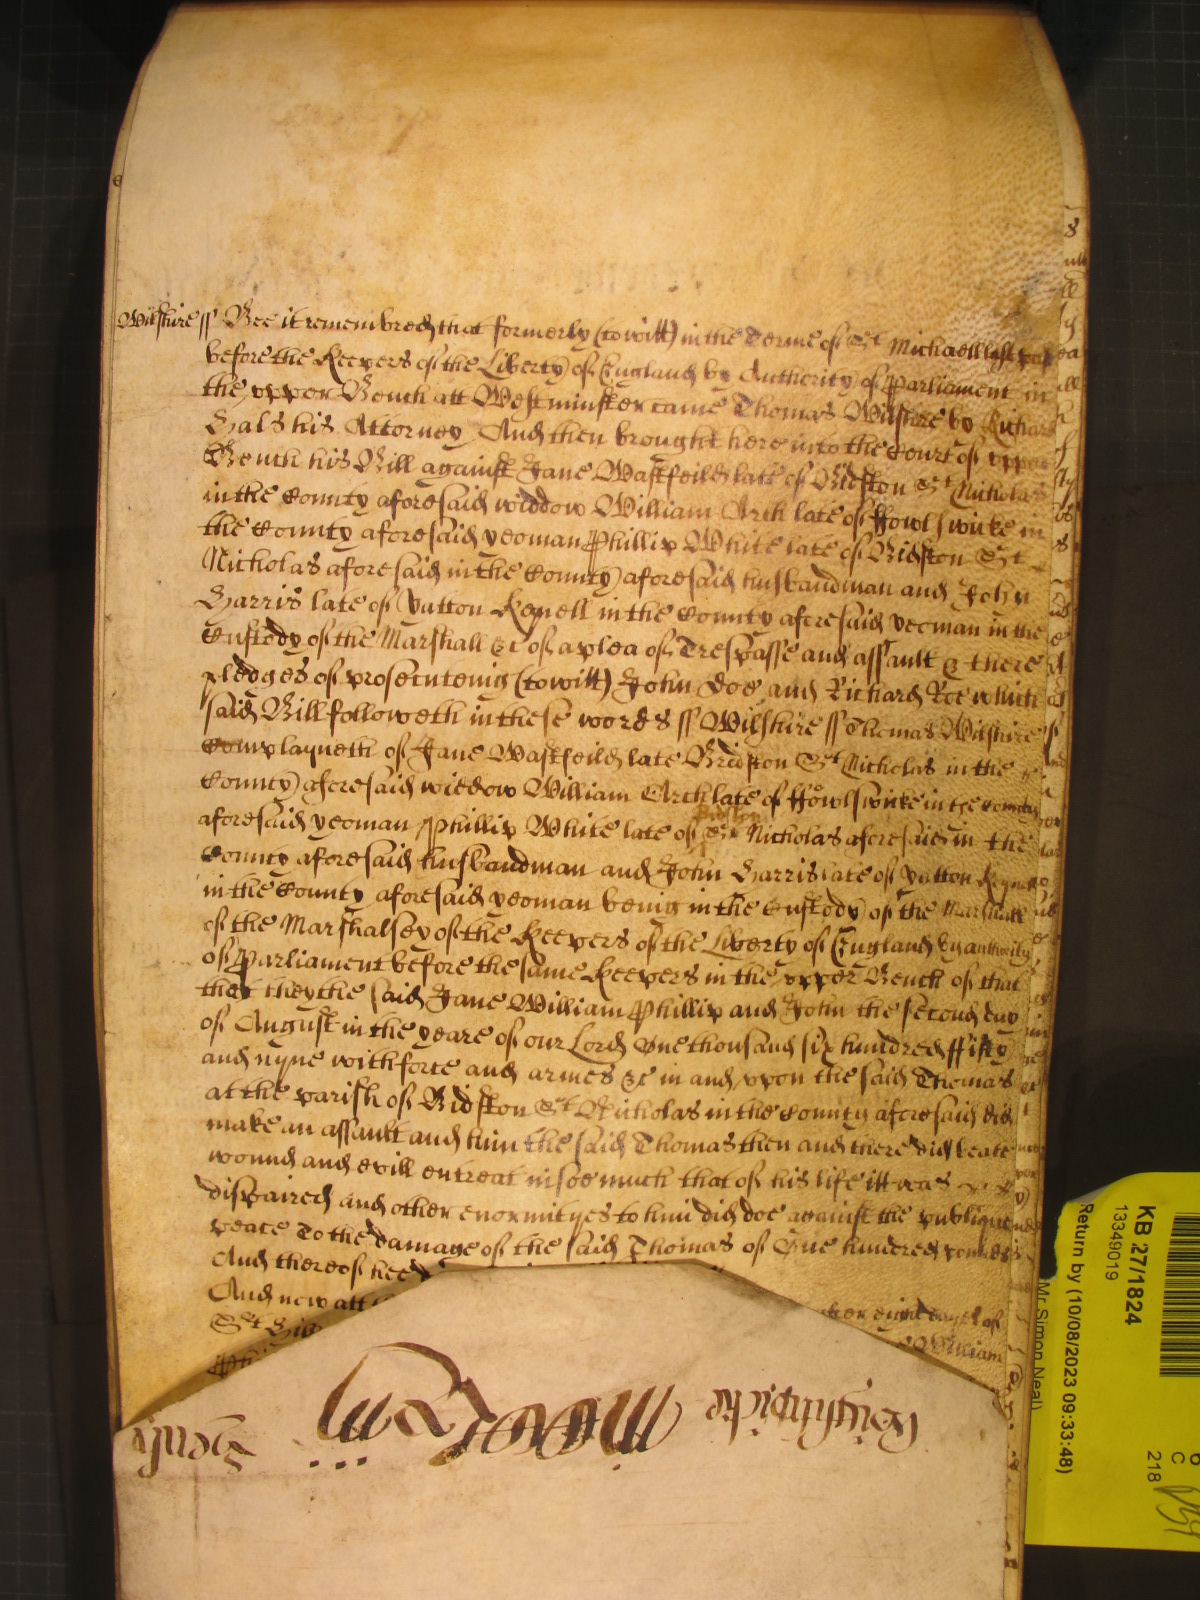 Wilshire ss Bee it remembred that formerly (to witt) in the Terme of St Michaell last past
before the Keepers of the Liberty of England by Authority of Parliament in
the upper Bench att Westminster came Thomas Wilshire by Richard
Hals his Attorney And then brought here into the Court of upper
Bench his Bill against Jane Wastfeild late of Bidston St Nicholas
in the County aforesaid widdow William Arch late of ffowlswicke in
the County aforesaid yeoman Phillip White late of Bidston St
Nicholas aforesaid in the County aforesaid husbandman and John
Harris late of Yatton Keynell in the County aforesaid yeoman in the
Custody of the Marshall &c of a plea of Trespasse and assault & there
pledges of prosecuteing (to witt) John Doe and Richard Roe which
said Bill followeth in these words ss Wilshire ss Thomas Wilshire
Complayneth of Jane Wastfeild late Bridston St Nicholas in the
County aforesaid widdow William Arch late of ffowlswicke in the County
aforesaid yeoman Phillip White late of Bidston St Nicholas aforesaid in the
County aforesaid husbandman and John Harris late of Yatton Keynell
in the County aforesaid yeoman being in the Custody of the Marshall
of the Marshalsey of the Keepers of the Liberty of England by authority
of Parliament before the same Keepers in the upper Bench of that
that they the said Jane William Phillip and John the second day
of August in the yeare of our Lord One thousand six hundred ffifty
and nyne with force and armes &c in and upon the said Thomas
at the parish of Bidston St Nicholas in the County aforesaid did
make an assault and him the said Thomas then and there did beate
wound and evill entreat insoe much that of his life itt was
dispaired and other enormityes to him did doe against the publique
peace To the damage of the said Thomas of One hundred pounds
And thereof hee
And now att
St Hil eight dayes of
William
KB 27/1824
13349019
Return by (10/08/2023 09:33:48)
Mr Simon Neal)
6
C
218